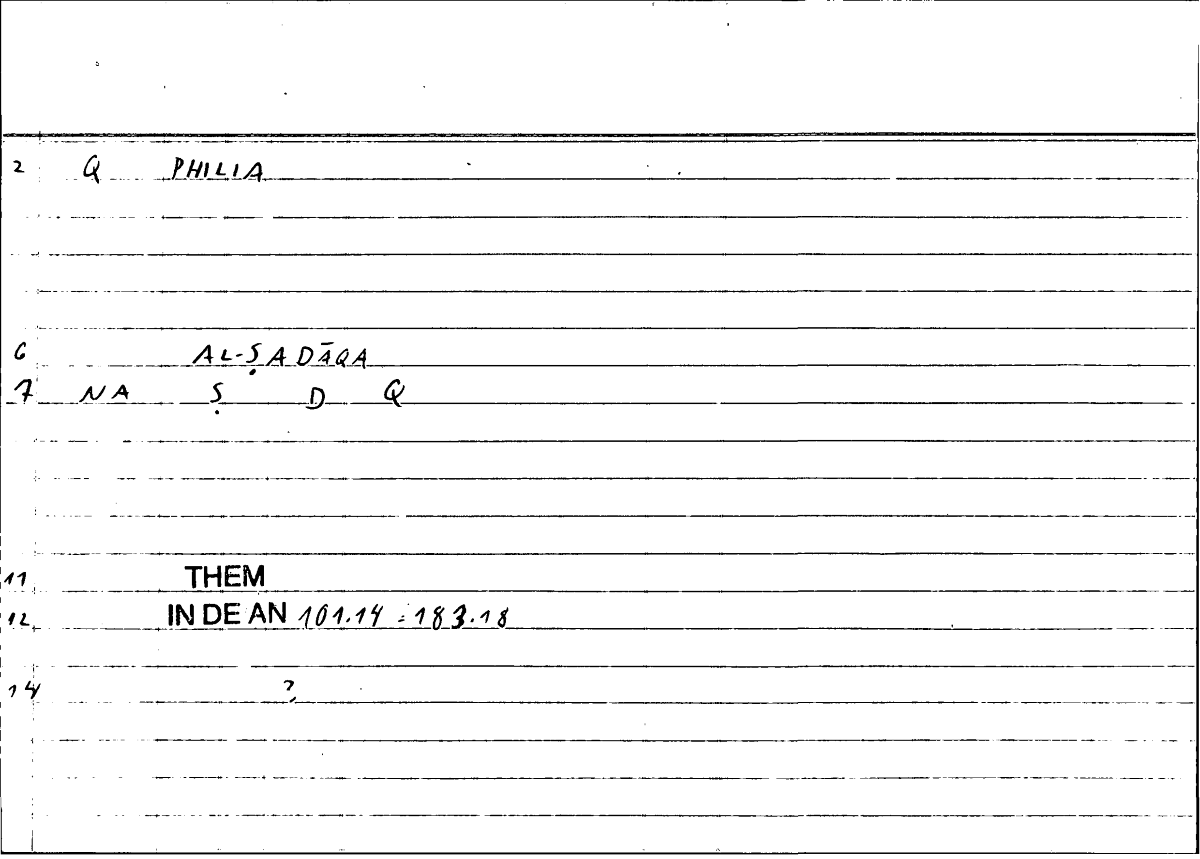 2 Q PHILIA
6 AL-ṢADĀQA
7 NA Ṣ D Q
11 THEM
12 IN DE AN 101.14 = 183.18
14 ?